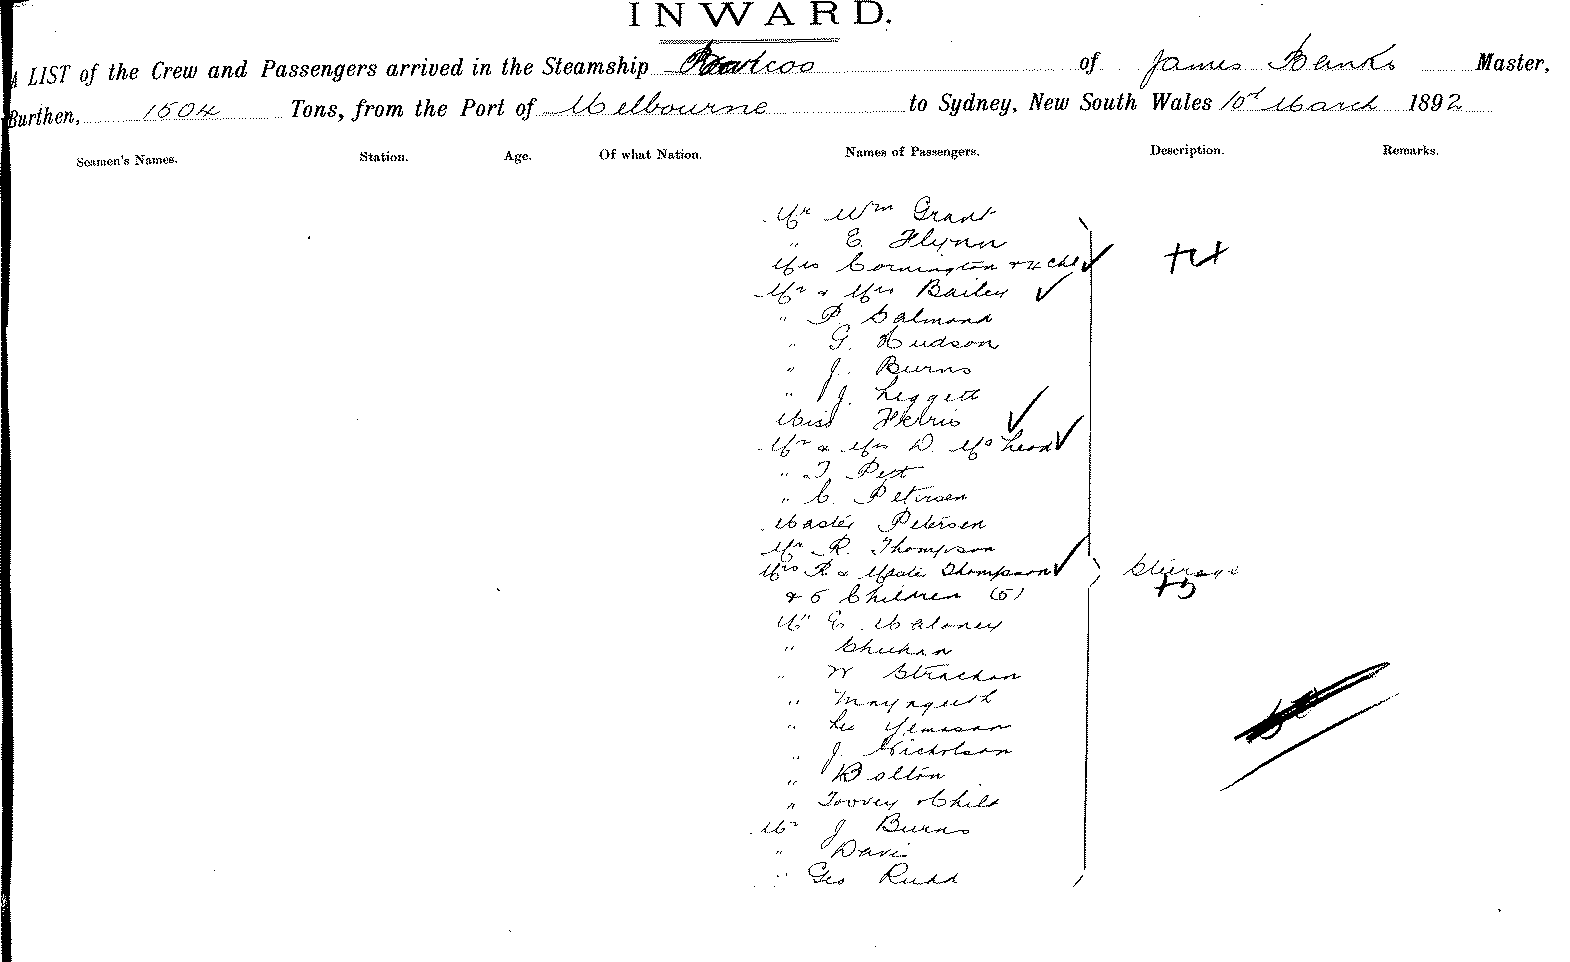 INWARD.
A LIST of the Crew and Passengers arrived in the Steamship Barcoo of James Banks Master,
Burthen, 1504 Tons, from the Port of Melbourne to Sydney, New South Wales 10th March 1892
Seamen's Names. Station. Age. Of what Nation. Names of Passengers. Description. Remarks.
Mr Wm Grant
" E. Flynn
Mrs Cornington + 4 Chd
Mr & Mrs Bailey
" P. Salmond
" G. Hudson
" J. Burns
" J. Leggett
Miss Ferris
Mr & Mrs D. McLeod
" T. Pett
" C. Petersen
Master Petersen
Mr R. Thompson
Mrs R & Thompson Steerage
& 5 Children (5) +5
Mr E. Maloney
" Sheehan
" W Strachan
"
" Lee
" J. Nicholson
" Bolton
" Toovey & Child
Mr J Burns
" Davis
" Geo Rudd